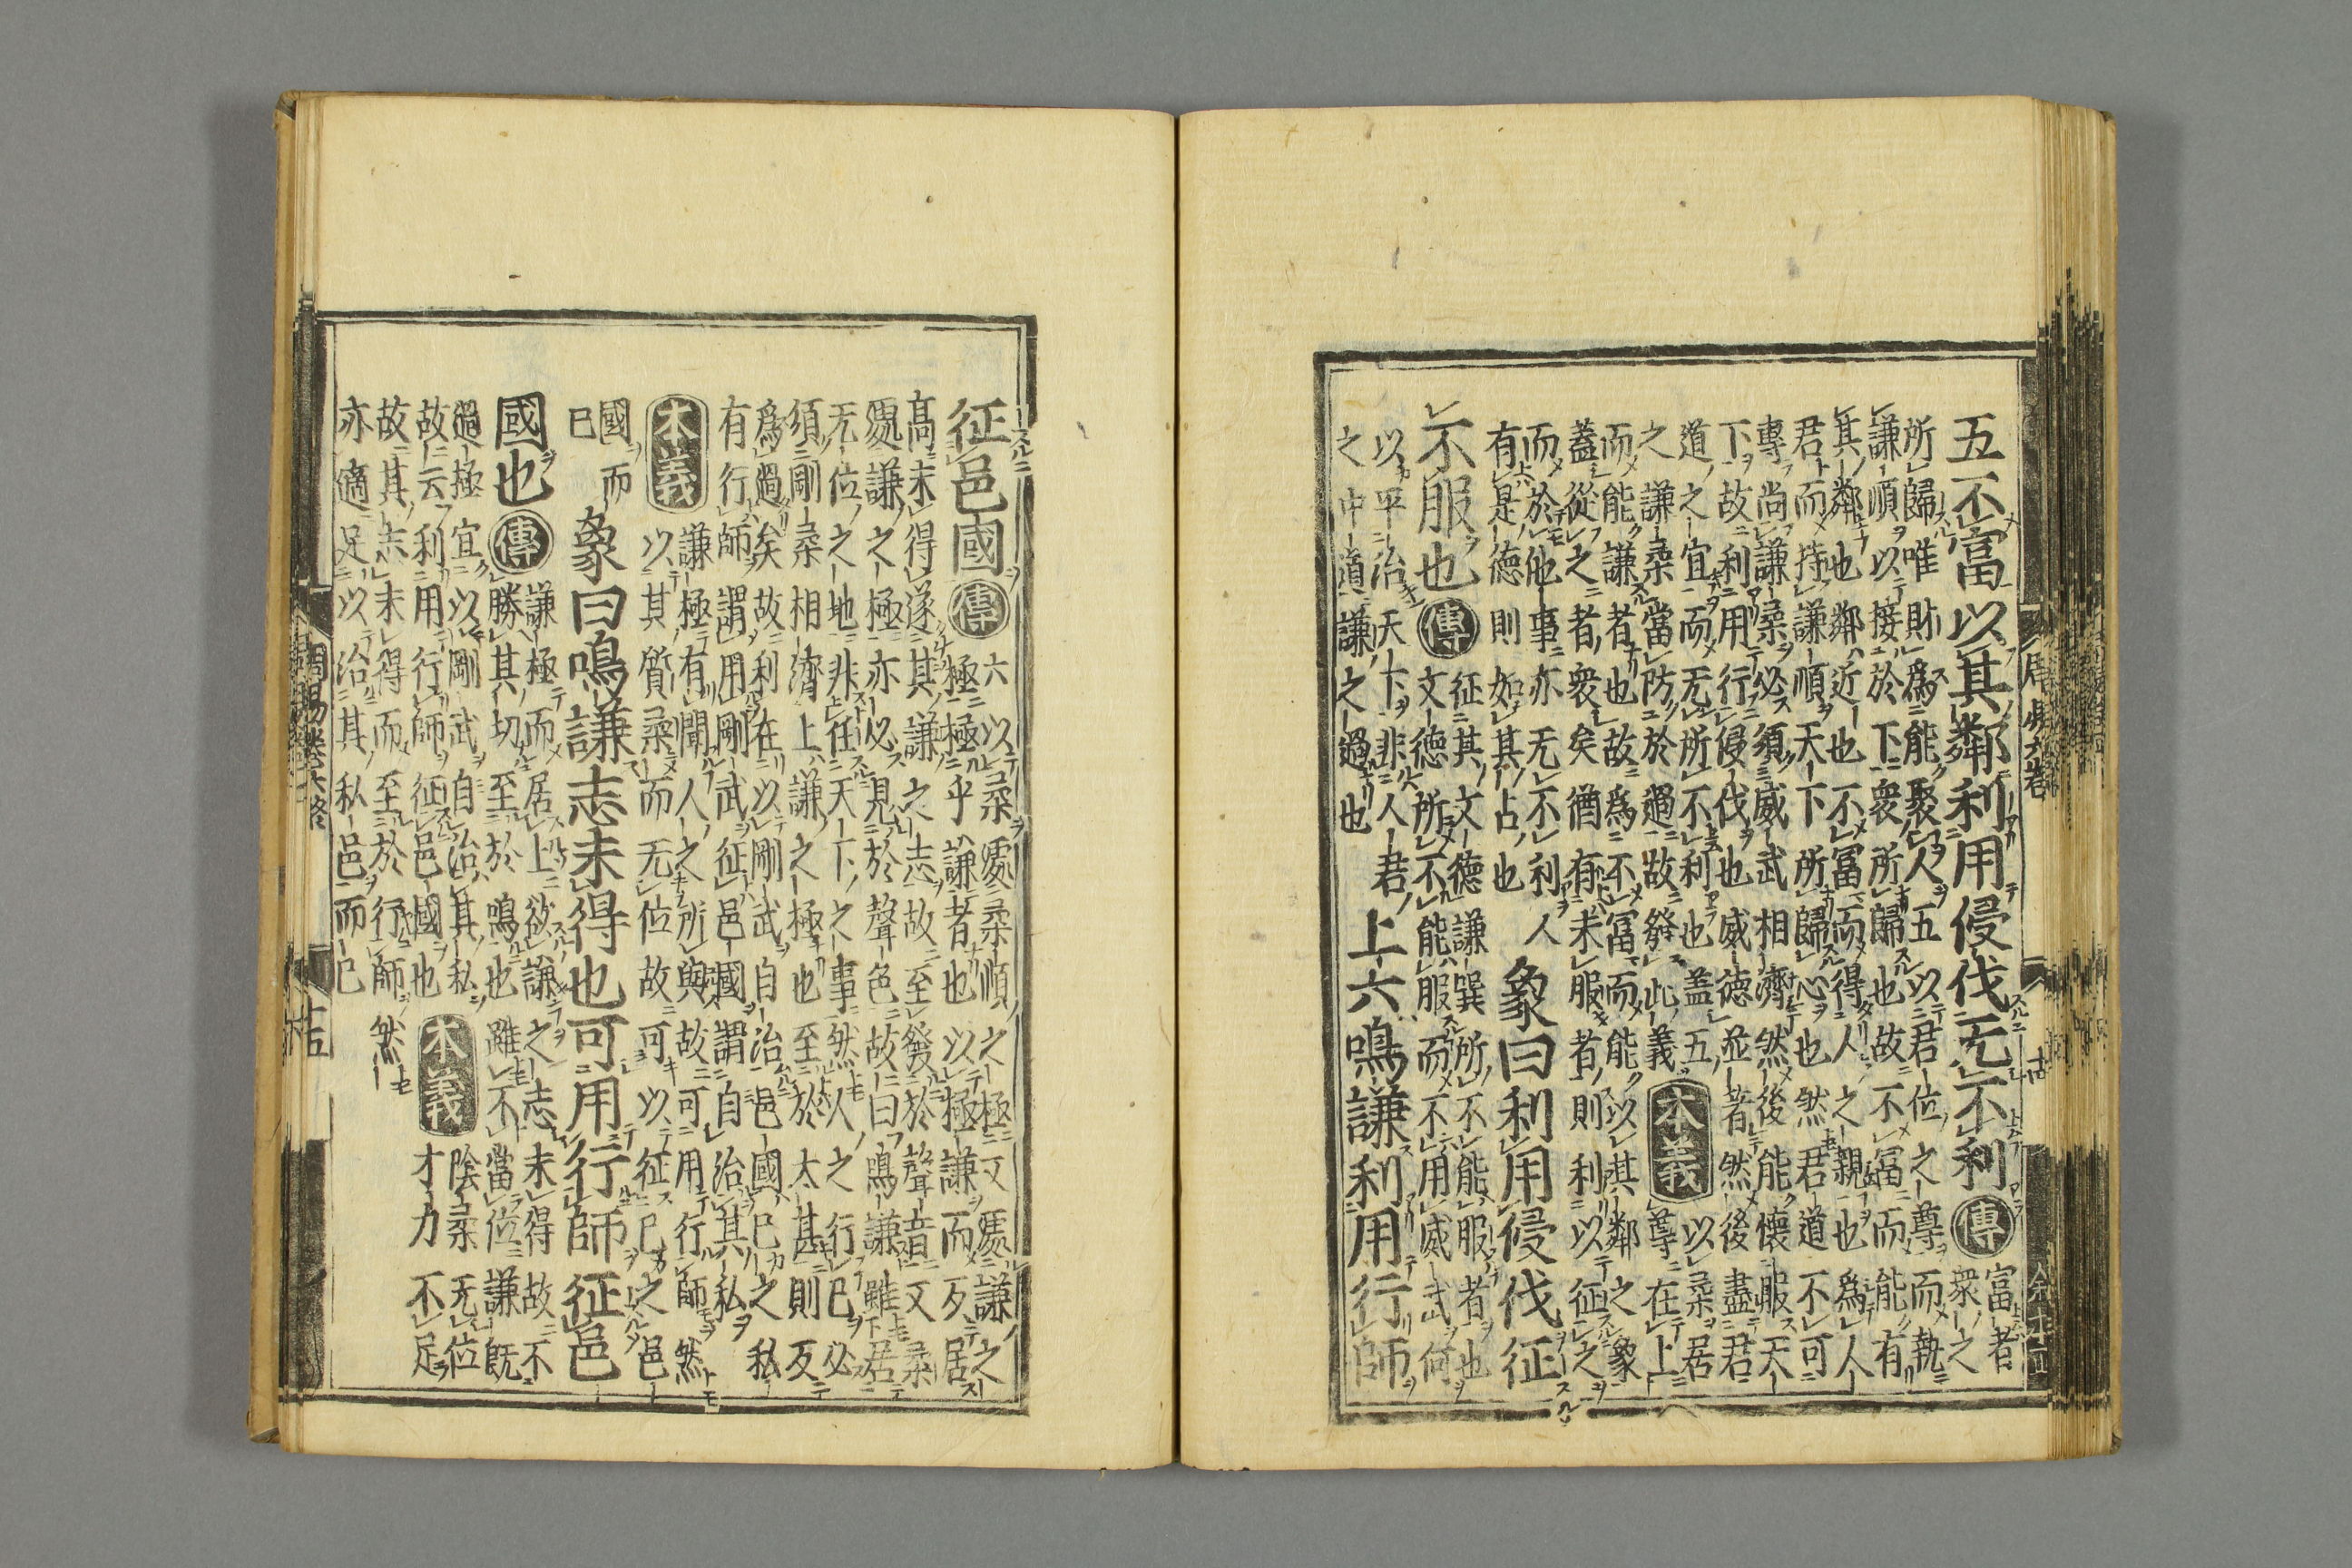 五不富以其鄰利用侵伐无不利傳富者
衆之
所歸唯財爲能聚人五以君位之尊而執
謙順以接於下衆所歸也故不富而能有
其鄰也鄰近也不富而得人之親也爲人
君而持謙順天下所歸心也然君道不可
專尚謙柔必須威武相濟然後能懷服天
下故利用行侵伐也威德並著然後盡君
道之宜而无所不利也蓋五
之謙柔當防於過故發此義
本義
以柔居
尊在上
而能謙者也故爲不富而能以其鄰之象
蓋從之者衆矣猶有未服者則利以征之
而於他事亦无不利人
有是德則如其占也
象曰利用侵伐征
不服也傳
征其文德謙巽所不能服者也
文德所不能服而不用威武何
以平治天下非人君
之中道謙之過也
上六鳴謙利用行師
征邑國傳
六以柔處柔順之極又處謙之
極極乎謙者也以極謙而反居
高未得遂其謙之志故至發於聲音又柔
處謙之極亦必見於聲色故曰鳴謙雖居
无位之地非任天下之事然人之行己必
須剛柔相濟上謙之極也至於太甚則反
爲過矣故利在以剛武自治邑國己之私
有行師謂用剛武征邑國謂自治其私
本義
謙極有聞人之所與故可用行師然
以其質柔而无位故可以征己之邑
國而
已
象曰鳴謙志未得也可用行師征邑
國也傳
謙極而居上欲謙之志未得故不
勝其切至於鳴也雖不當位謙既
過極宜以剛武自治其私
故云利用行師征邑國也
本義
陰柔无位
才力不足
故其志未得而至於行師然
亦適足以治其私邑而已